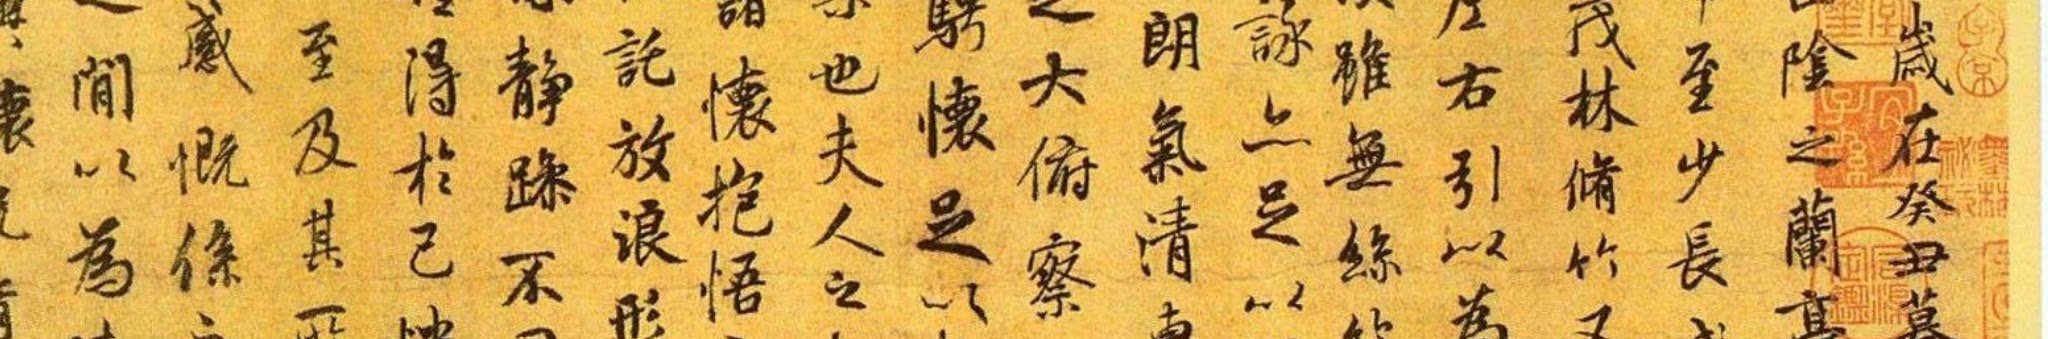 歲在癸丑暮
陰之蘭亭
至少長
茂林脩竹又
左右引以為
雖無絲竹
詠亦足以
朗氣清惠
之大俯察
騁懷足以
樂也夫人之
諸懷抱悟
託放浪形
靜躁不
得於己快
至及其所
感慨係之
之間以為
懷